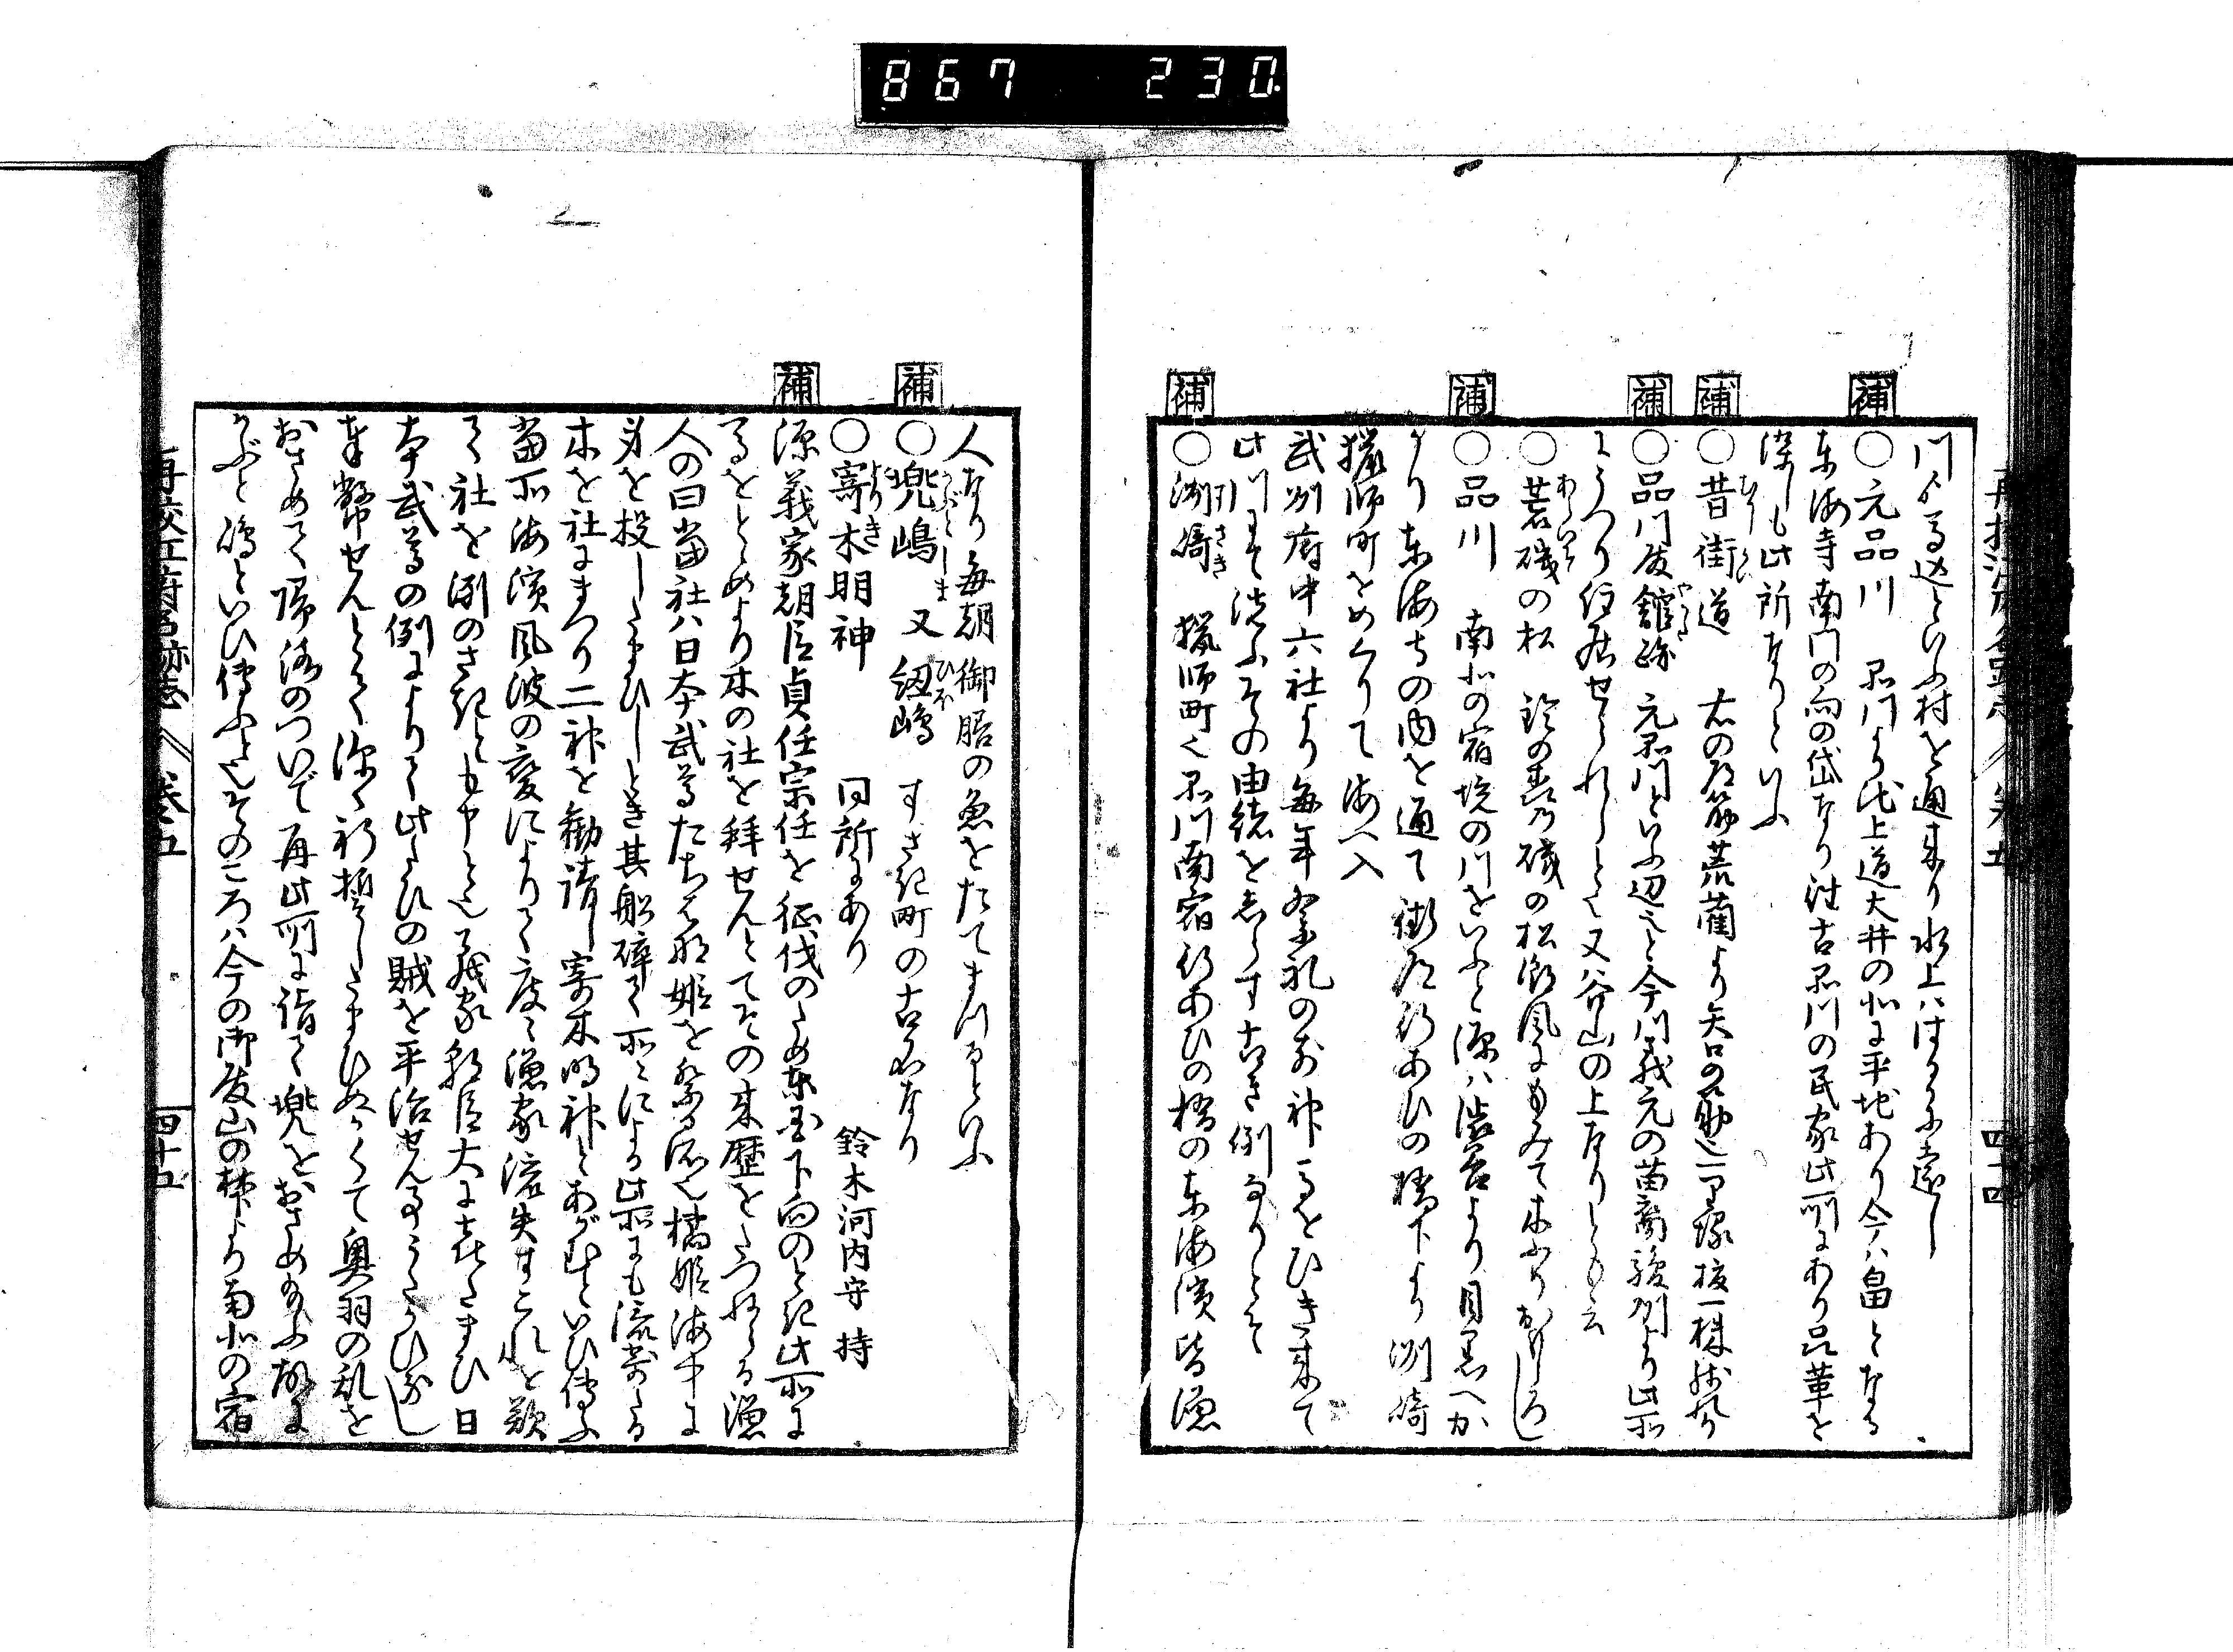 867 230
川はる辺といふ村を通来り水上ははるかに遠し
補
○元品川 品川より池上道大井の北に平地あり今ハ畠となる
東海寺南門の向の岱なり往古品川の民家此所にあり品革を
染しも此所なりといふ
補
○昔街道 右の道筋荒藺より矢口の
補
○品川殿館跡 元品川といふ辺也と今川義元の苗裔駿州より此所
にうつり住居せられしとぞ又谷山の上なりしとも云
○荒磯の松 鈴の森乃磯の松
補
○品川 南北の宿境の川をいふと源ハ澁谷より目黒へか
より東海寺の内を通て街道行あひの橋下より洲崎
獵師町をめくりて海へ入
武州府中六社より毎年祭礼の前神馬をひき来て
此川にて洗ふその由緒をしらす古き例なりとそ
補
○洲崎 獵師町也品川南宿行あひの橋の東海濱皆漁
再校江府名跡志 巻五 四十四
人なり毎朝御膳の魚をたてまつるといふ
補
○兜嶋 又 紐嶋 すさき町の古名なり
○寄木明神 同所にあり 鈴木河内守 持
補
源義家朝臣貞任宗任を征伐のため東国下向のとき此所に
馬をとゝめより木の社を拜せんとてその来歴をたつねらる漁
人の曰當社ハ日本武尊たちばな姫を祭る所也橘姫海中に
身を投したまひしとき其船碎て所々による此所にも流寄たる
木を社にまつり二神を勧請し寄木明神とあがむといひ傳ふ
當所海濱風波の変によりて度々漁家流失すこれを歎
て社を
本武尊の例によりて此たひの賊を平治せん事うたかひなし
奉幣せんとて深く祈誓したまひぬかくて奥羽の乱を
おさめて帰洛のついで再此所に詣て兜をおさめ給ふ故に
かぶと嶋といひ傳ふと也そのころハ今の御殿山の林より南北の宿
再校江府名跡志 巻五 四十五